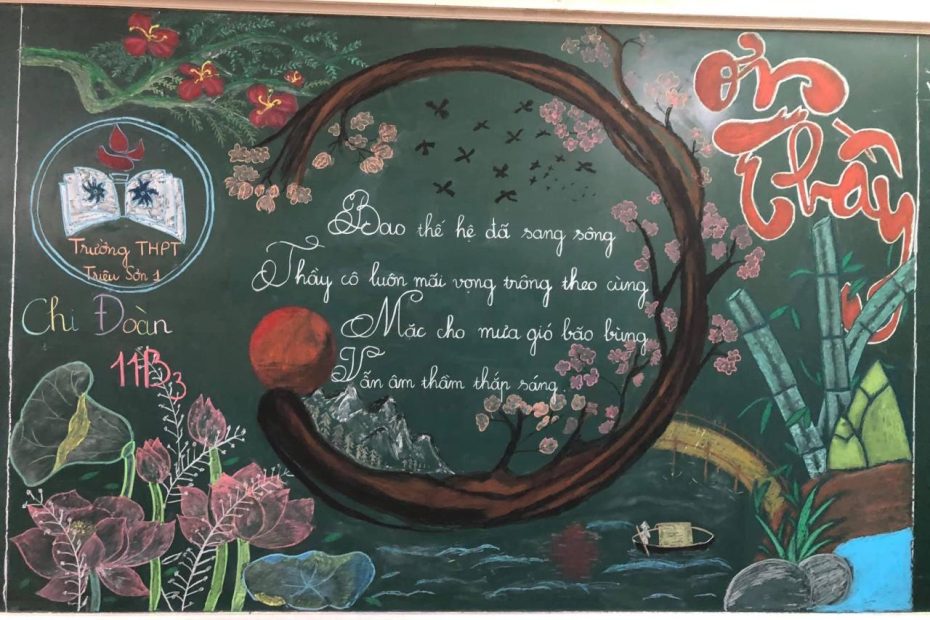 Trường THPT
Triệu Sơn 1
Chi Đoàn
11B3
Bao thế hệ đã sang sông
Thầy cô luôn mãi vọng trông theo cùng
Mặc cho mưa gió bão bùng
Vẫn âm thầm thắp sáng
Ơn
Thầy